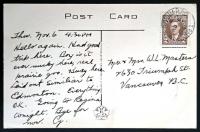 POST CARD
Thurs. Nov. 6 4:30 PM
Hello again. Had good
trip here. Boy is it
ever windy here, real
prairie joy. Busy here
laid out similar to
Edmonton. Everything
OK. Going to Regina
tonight. Bye for
now.
Mr & Mrs W.L. Masters
7630 Triumph St.
Vancouver B.C.